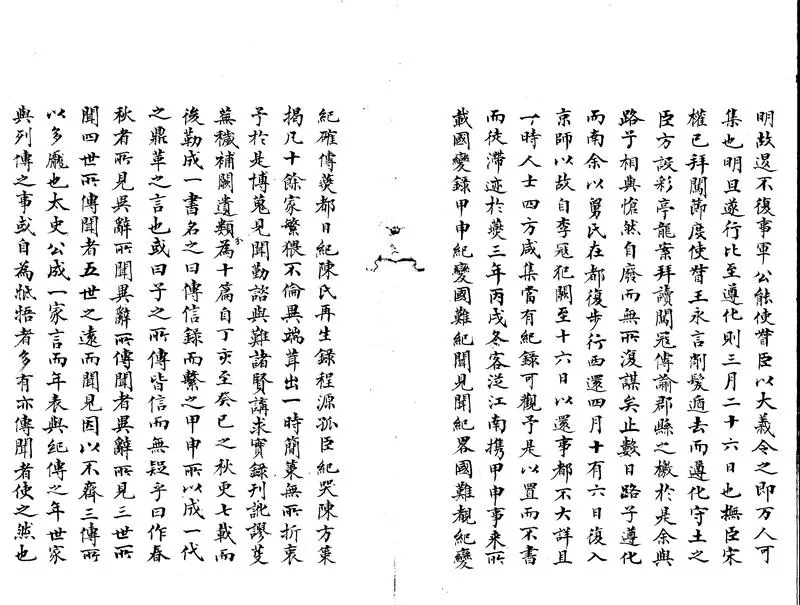 明故還不復事軍公能使督臣以大義令之即万人可
集也明旦遂行比至遵化則三月二十六日也撫臣宋
權已拜闖節度使督王永言削髮遁去而遵化守土之
臣方設彩亭龍案拜讀闖冦傳諭郡縣之檄於是余與
路子相與愴然自廢而無所復謀矣止數日路子遵化
而南余以舅氏在都復步行西還四月十有六日復入
京師以故自李冦犯闕至十六日以還事都不大詳且
一時人士四方咸集當有紀録可觀予是以置而不書
而徒滯迹於燕三年丙戌冬客從江南携甲申事来所
載國變録甲申紀變國難紀聞見聞紀畧國難覩紀變
紀確傳燕都日紀陳氏再生録程源孤臣紀哭陳方策
揭凡十餘家繁猥不倫異端茸出一時簡策無所折衷
予於是博蒐見聞勤諮與難諸賢講求實録刊訛謬芟
蕪穢補闕遺類為十篇自丁亥至癸巳之秋更七載而
後勒成一書名之曰傳信録而繫之甲申所以成一代
之鼎革之言也或曰子之所傳皆信而無疑乎曰作春
秋者所見異辭所聞異辭所傳聞者異辭所見三世所
聞四世所傳聞者五世之遠而聞見因以不齊三傳所
以多龐也太史公成一家言而年表與紀傳之年世家
與列傳之事或自為牴牾者多有亦傳聞者使之然也